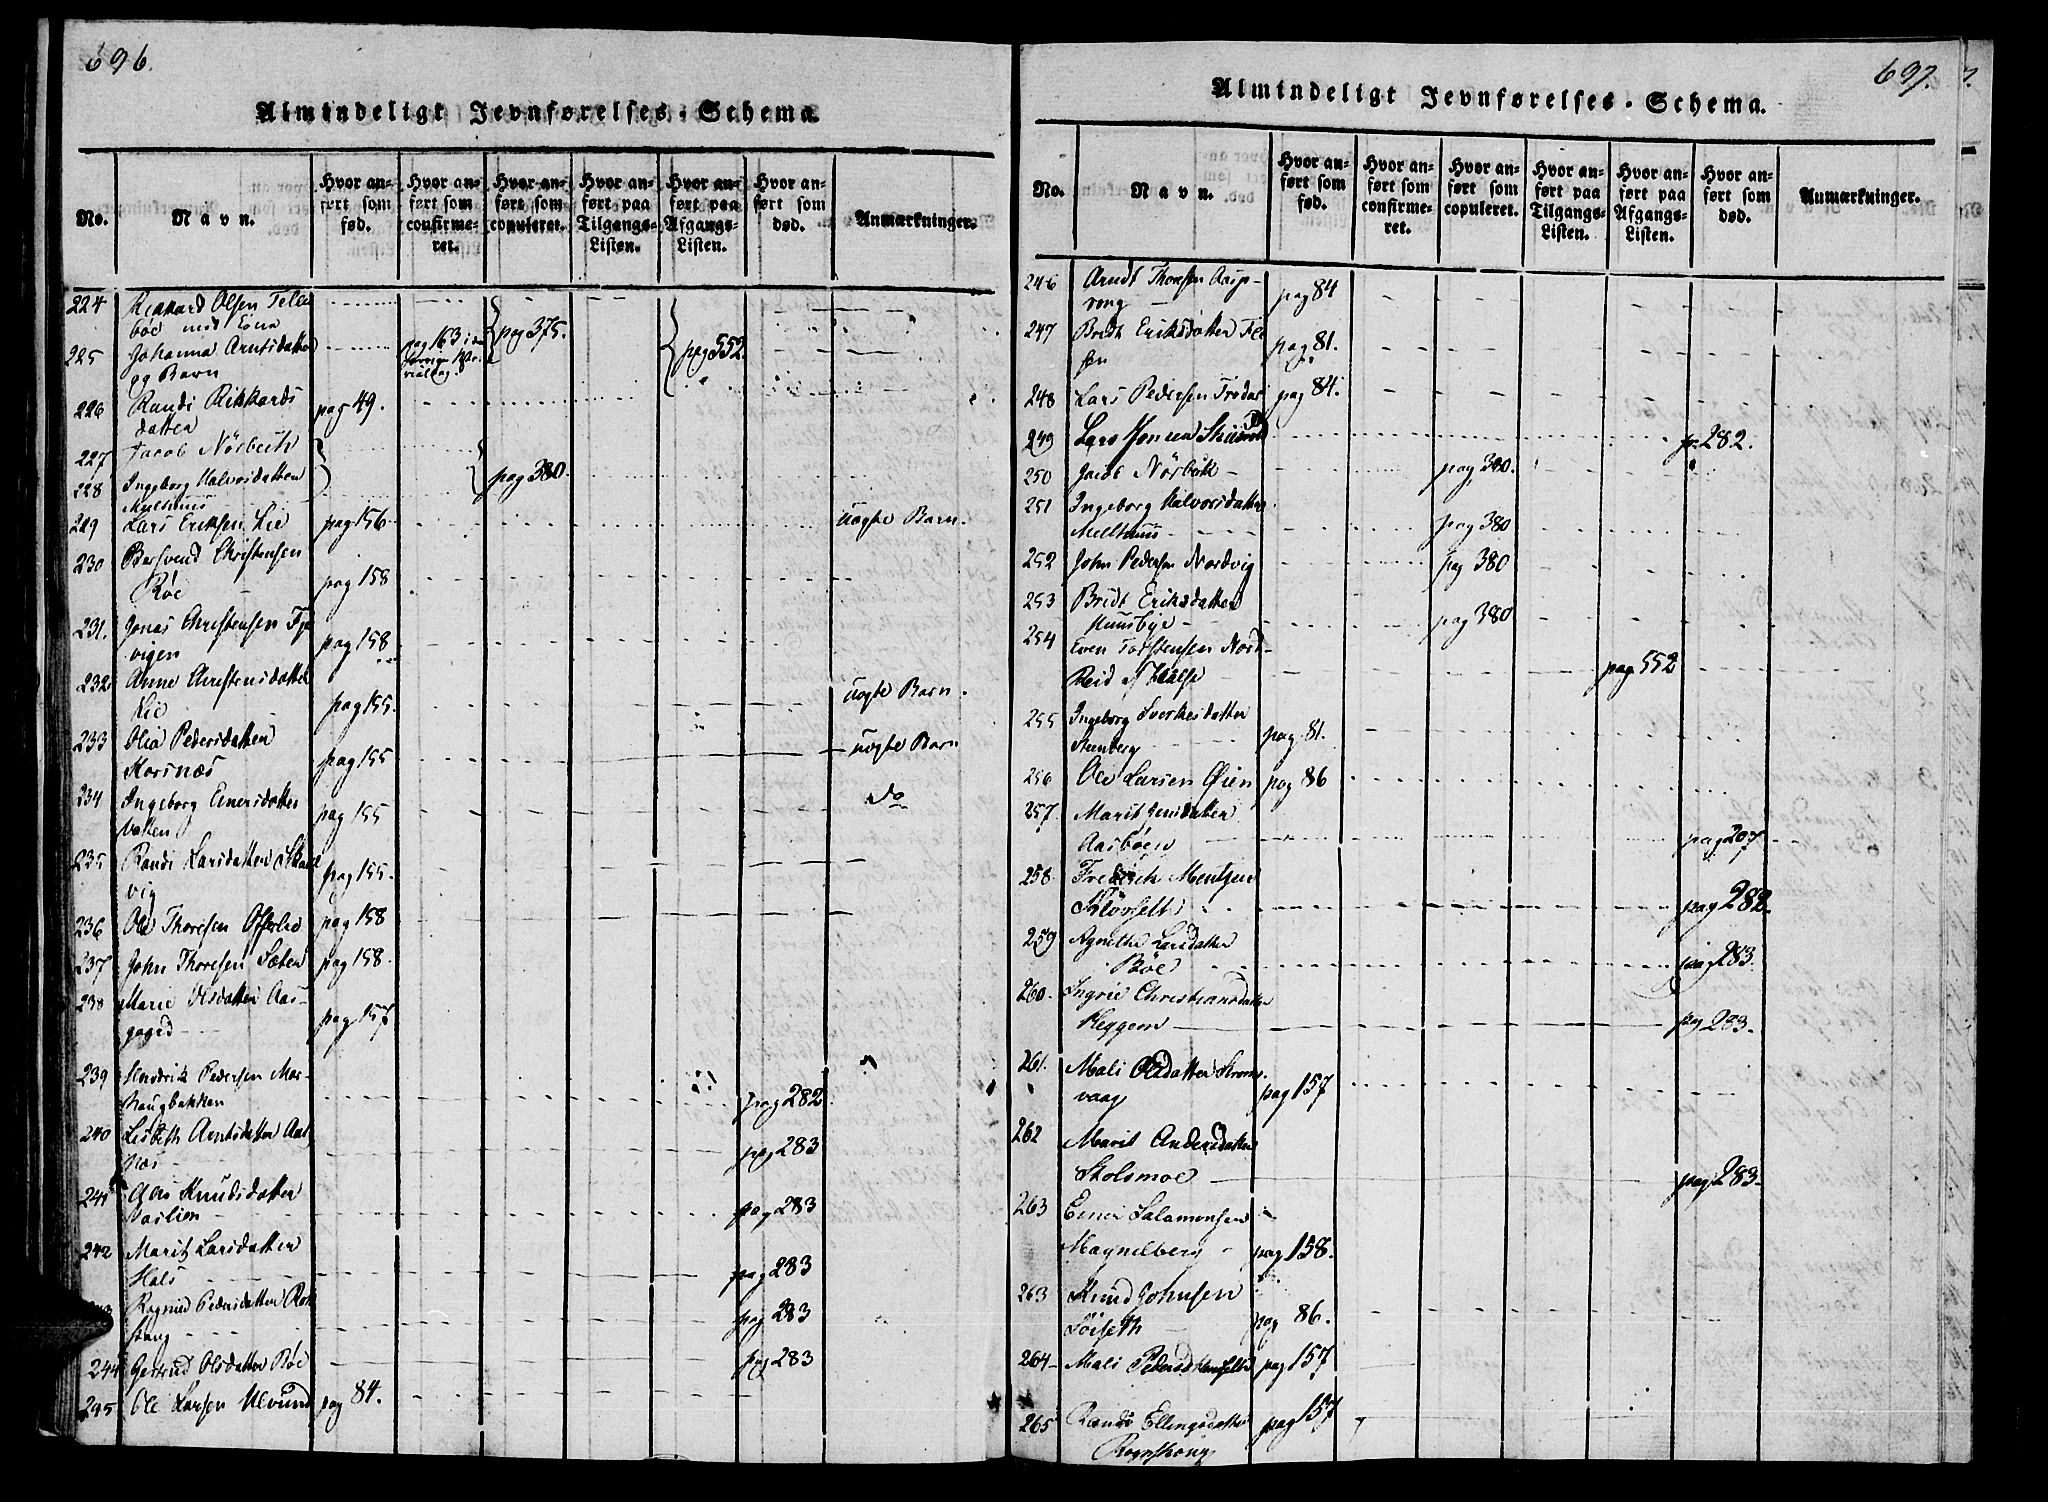 696.
Almindeligt Jevnførelses-Schema.
No.
Navn.
Hvor an-
ført som
fød.
Hvor an-
ført som
confirme-
ret.
Hvor an-
ført som
copuleret.
Hvor an-
ført paa
Tilgangs-
Listen.
Hvor an-
ført paa
Afgangs-
Listen.
Hvor an-
ført som
død.
Anmærkninger.
224 Rikkard Olsen
bøe med Kone pag 375. pag 552.
225 Johanna Arntsdatter pag 163 i
og Barn
226 Randi Rikkards pag 49.
datter
227 Jacob Nörbeck
228 Ingeborg Halvorsdatter pag 380.
Melthuus
229 Lars Eriksen Lie pag 156 uægte Barn.
230 Bersvend Christensen
Röe pag 158
231. Jonas Christensen
vigen pag 158
232 Anne Christensdatter
Lie pag 155. uægte Barn.
233 Olia Pedersdatter
Korsnæs pag 155 uægte Barn
234 Ingeborg Einersdatter do
Vatten pag 155
235 Randi Larsdatter
vig pag 155.
236 Ole Thoresen pag 158
237 John Thoresen Sæter pag 158.
238 Marie Olsdatter Aas-
gaard pag 157
239 Hendrik Pedersen Mor-
haugbakken pag 282.
240 Lisbeth Arntsdatter Aal-
næs pag 283
241 Knudsdatter
Vaslien pag 283
242 Marit Larsdatter
Hals pag 283
Ragnild Pedersdatter
pag 283
244 Gertrud Olsdatter Böe pag 283
245 Ole Larsen Ulvund pag 84.
697.
Almindeligt Jevnførelses-Schema.
No.
Navn.
Hvor an-
ført som
fød.
Hvor an-
ført som
confirme-
ret.
Hvor an-
ført som
copuleret.
Hvor an-
ført paa
Tilgangs-
Listen.
Hvor an-
ført paa
Afgangs-
Listen.
Hvor an-
ført som
død.
Anmærkninger.
246 Arndt Thoresen pag 84
247 Bredt Eriksdatter
pag 81.
248 Lars Pedersen pag 84.
249 Lars Jensen 282.
250 Jacob Nörbeck pag 380.
251 Ingeborg Halvorsdatter
Melthuus pag 380
252 John Pedersen Nordvig pag 380
253 Bredt Eriksdatter
Huusbye pag 380
254 Even Torstensen Nord-
Heid pag 552
255 Ingeborg Sverkesdatter
Steenberg pag 81.
256 Ole Larsen Øien pag 86
257 Marit Jensdatter
Aasböen pag 207
258. Fredrich Mentzen
pag 282.
259 Agnethe Larsdatter
Böe pag 283.
260. Ingrie Christiansdatter
Heggem pag 283.
261. Mali Olsdatter Ströms-
vaag pag 157
262 Marit Andersdatter
Stolsmoe pag 283.
263 Einer Salamonsen
Magnelberg pag 158.
263 Knud Johnsen
pag 86.
264 Mali pag 157
265 Randi Ellingsdatter pag 157